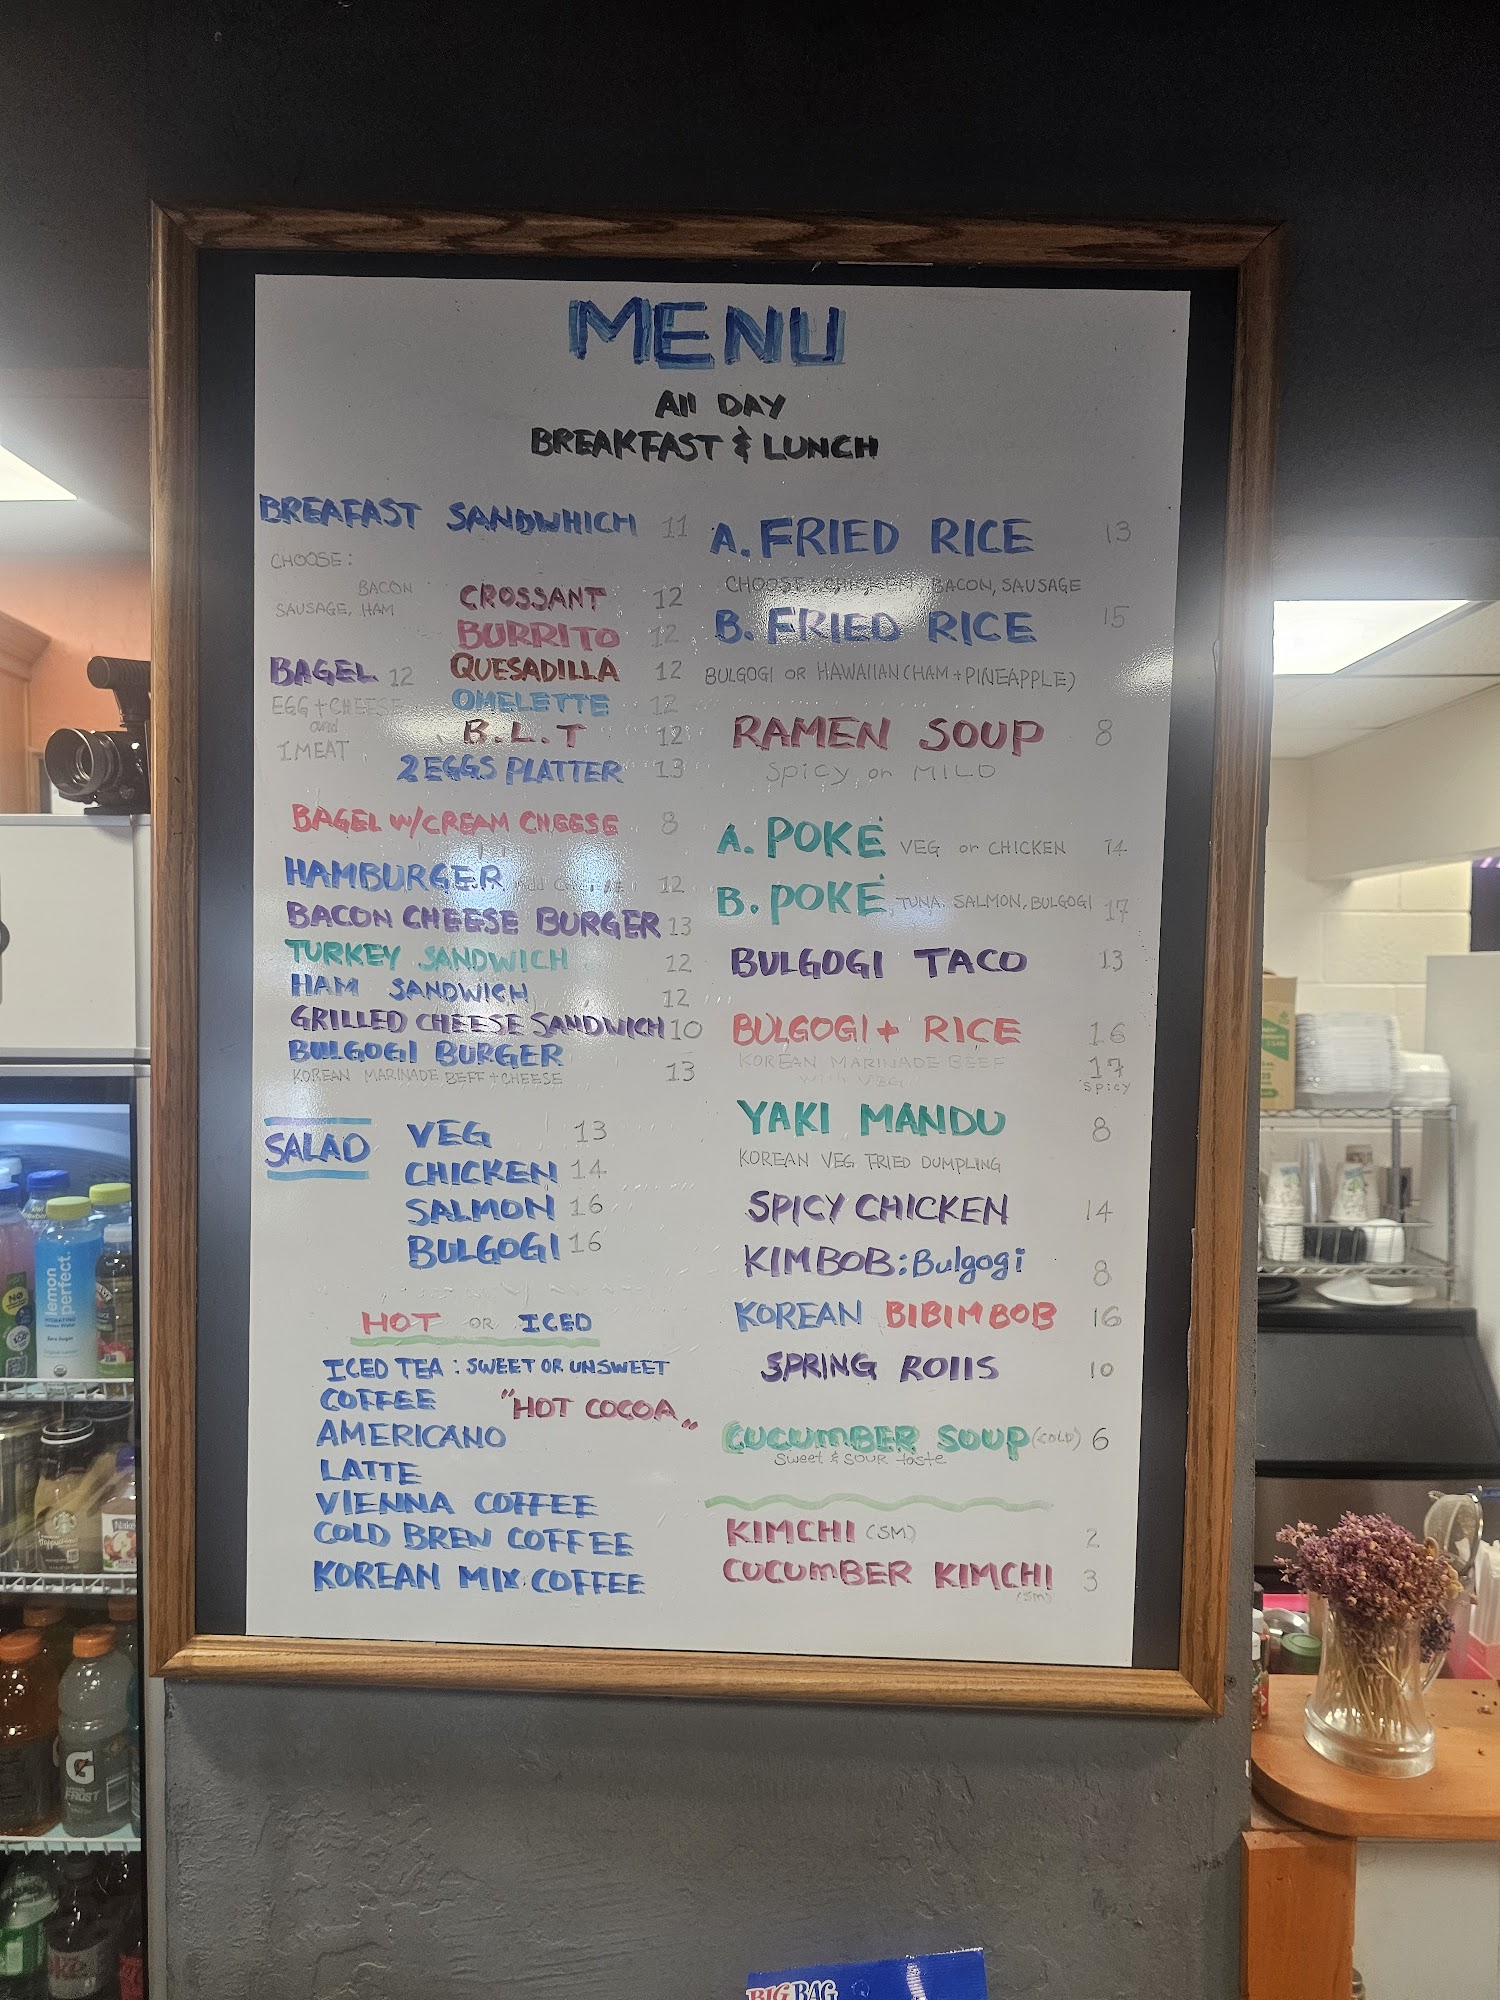 MENU
All DAY
BREAKFAST & LUNCH
BREAFAST SANDWHICH 11
CHOOSE:
BACON
SAUSAGE, HAM
CROSSANT 12
BURRITO 12
BAGEL 12
QUESADILLA 12
EGG + CHEESE
and
1 MEAT
OMELETTE 12
B.L.T 12
2 EGGS PLATTER 13
BAGEL W/CREAM CHEESE 8
HAMBURGER 12
BACON CHEESE BURGER 13
TURKEY SANDWICH 12
HAM SANDWICH 12
GRILLED CHEESE SANDWICH 10
BULGOGI BURGER 13
KOREAN MARINADE BEFF + CHEESE
SALAD
VEG 13
CHICKEN 14
SALMON 16
BULGOGI 16
HOT OR ICED
ICED TEA : SWEET OR UNSWEET
COFFEE "HOT COCOA"
AMERICANO
LATTE
VIENNA COFFEE
COLD BREW COFFEE
KOREAN MIX COFFEE
A. FRIED RICE 13
CHOOSE: CHICKEN, BACON, SAUSAGE
B. FRIED RICE 15
BULGOGI OR HAWAIIAN (HAM + PINEAPPLE)
RAMEN SOUP 8
SPICY or MILD
A. POKE VEG or CHICKEN 14
B. POKE TUNA, SALMON, BULGOGI 17
BULGOGI TACO 13
BULGOGI + RICE 16
KOREAN MARINADE BEEF
with VEG
17
SPICY
YAKI MANDU 8
KOREAN VEG FRIED DUMPLING
SPICY CHICKEN 14
KIMBOB: Bulgogi 8
KOREAN BIBIMBOB 16
SPRING ROllS 10
CUCUMBER SOUP (COLD) 6
Sweet & SOUR taste
KIMCHI (SM) 2
CUCUMBER KIMCHI 3
(SM)
lemon
perfect.
G
FROST
BIG BAG